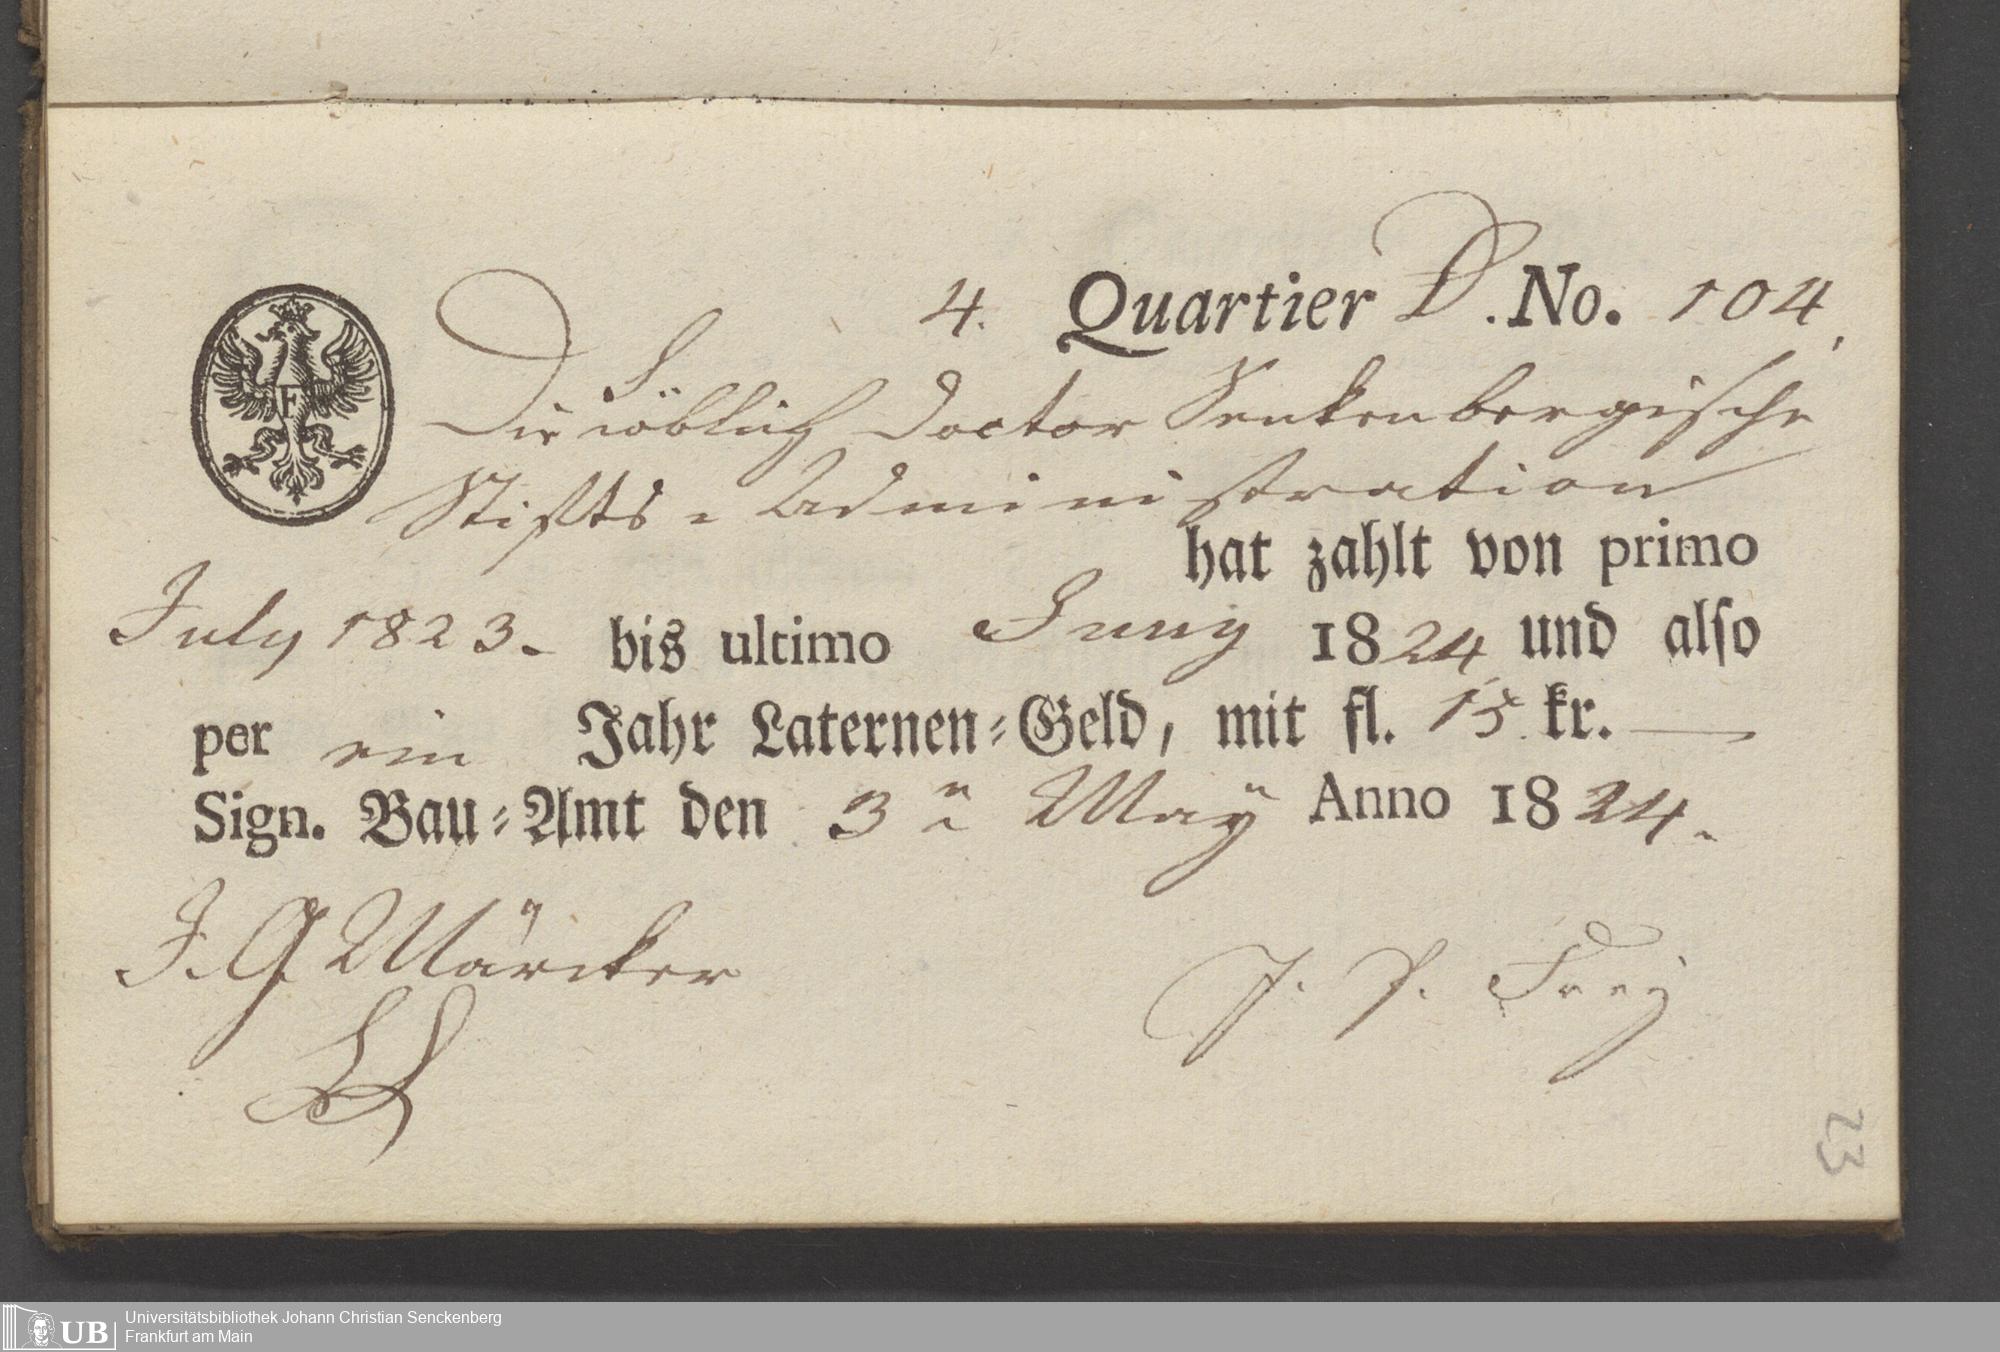 4. Quartier D. No. 104.
F
Die Löblich Doctor Senkenbergische
Stifts-Administration
hat zahlt von primo
July 1823. bis ultimo Juny 1824 und also
per ein Jahr Laternen-Geld, mit fl. 15 kr.
Sign. Bau-Amt den 3n May Anno 1824.
J. G Märcker
J. P. Frey
23
UB
Universitätsbibliothek Johann Christian Senckenberg
Frankfurt am Main